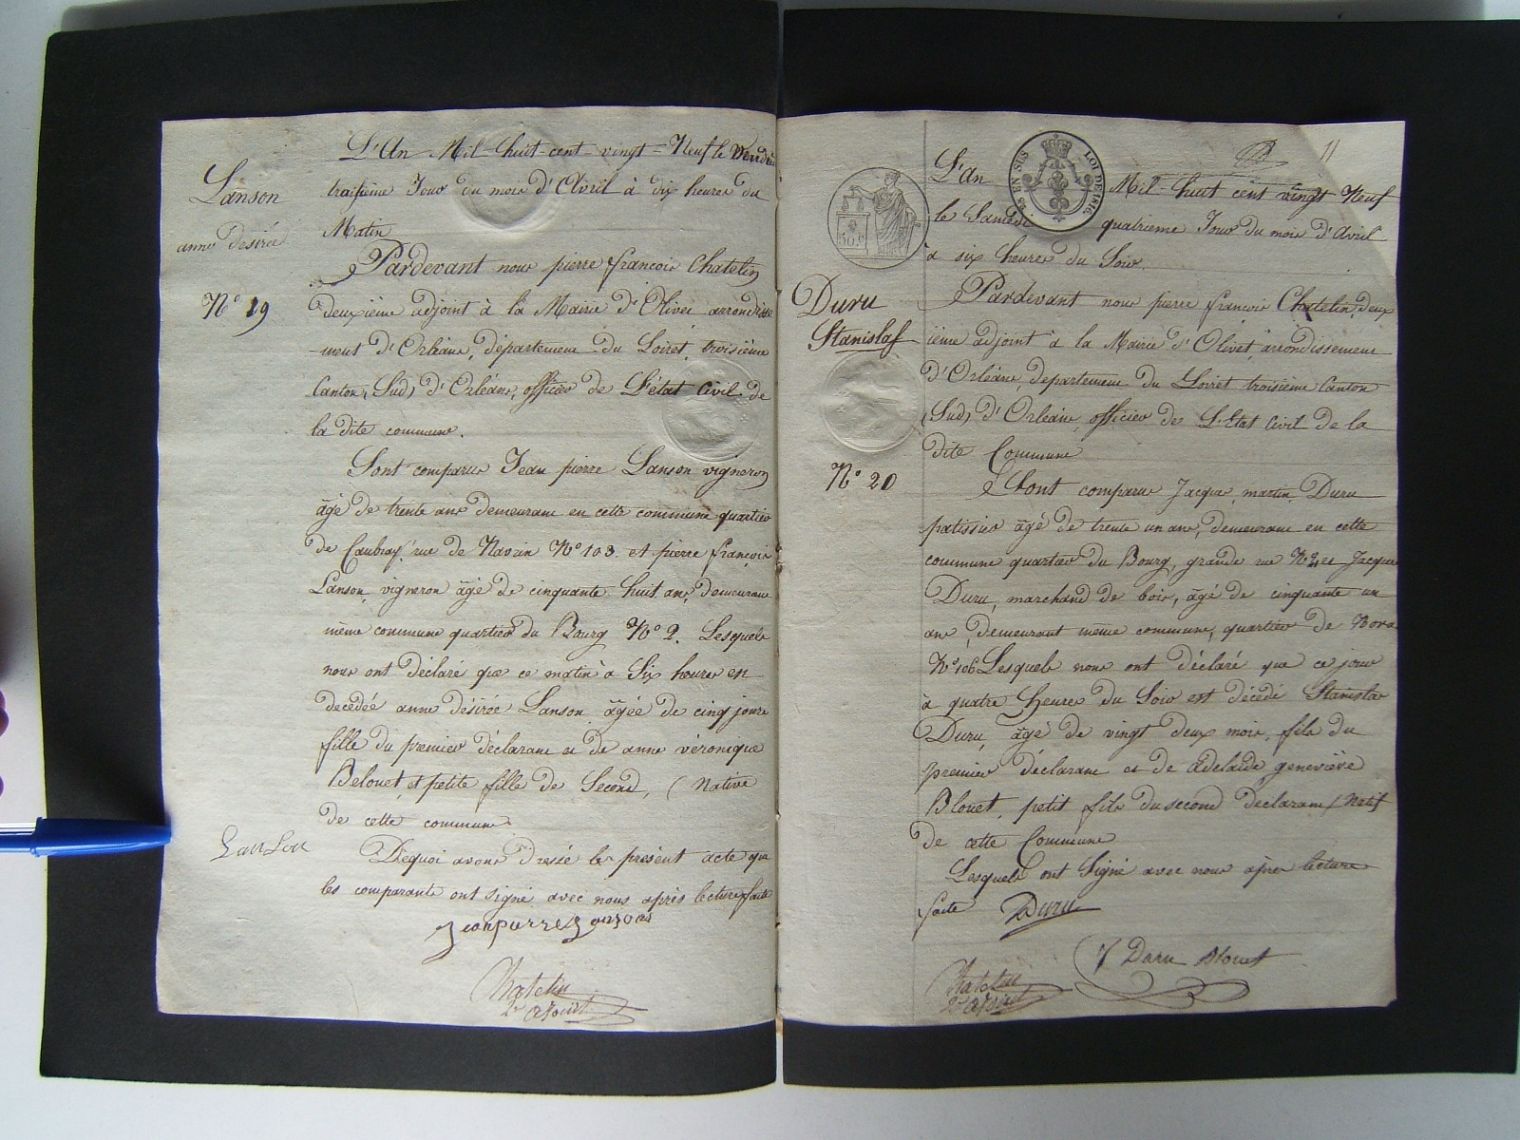 L'An Mil-huit-cent-vingt-Neuf le Vendredi
troisième Jour du mois d'Avril à dix heures du
Matin
Lanson
anne désirée
N° 19
Pardevant nous pierre françois Chatelin
deuxième adjoint à la Mairie d'Olivet arrondisse
ment d'Orléans, département du Loiret, troisième
Canton (Sud) d'Orléans, officier de L'état Civil de
la dite commune.
Sont comparus Jean pierre Lanson vigneron
âgé de trente ans demeurant en cette commune quartier
de Caubray rue de N° 103 et pierre françois
Lanson, vigneron âgé de cinquante huit ans, demeurant
même commune quartier du Bourg N° 2. Lesquels
nous ont déclaré que ce matin à Six heures est
décédée anne désirée Lanson âgée de cinq jours
fille du premier déclarant et de anne véronique
Belouet, et petite fille de Second, (Native
de cette commune
Lanson
Dequoi avons Dressé le présent acte que
les comparants ont signé avec nous après lecture faite
Jean pierre Lanson
Chatelin
2e adjoint
11
L'An Mil-huit cent vingt Neuf
le Samedi quatrieme Jour du mois d'Avril
à six heures du Soir.
LOI DE 1816
Duru
Stanislas
N° 20
Pardevant nous pierre françois Chatelin, deux
ième adjoint à la Mairie d'Olivet, arrondissement
d'Orléans, departement du Loiret troisième Canton
(Sud) d'Orléans officier de L'Etat Civil de la
dite Commune
Sont comparus Jacques, martin, Duru
patissier âgé de trente un ans, demeurant en cette
commune quartier du Bourg, grande rue et Jacques
Duru, marchand de bois, âgé de cinquante un
ans, demeurant même commune, quartier de
N° 106 Lesquels nous ont déclaré que ce jour
à quatre Heures du Soir est décédé Stanislas
Duru, âgé de vingt deux mois, fils du
premier déclarant et de adelaïde geneviève
Blouet, petit fils du second declarant (Natif
de cette Commune
Lesquels ont Signé avec nous après lecture
faite Duru
J Duru Blouet
Chatelin
2e adjoint